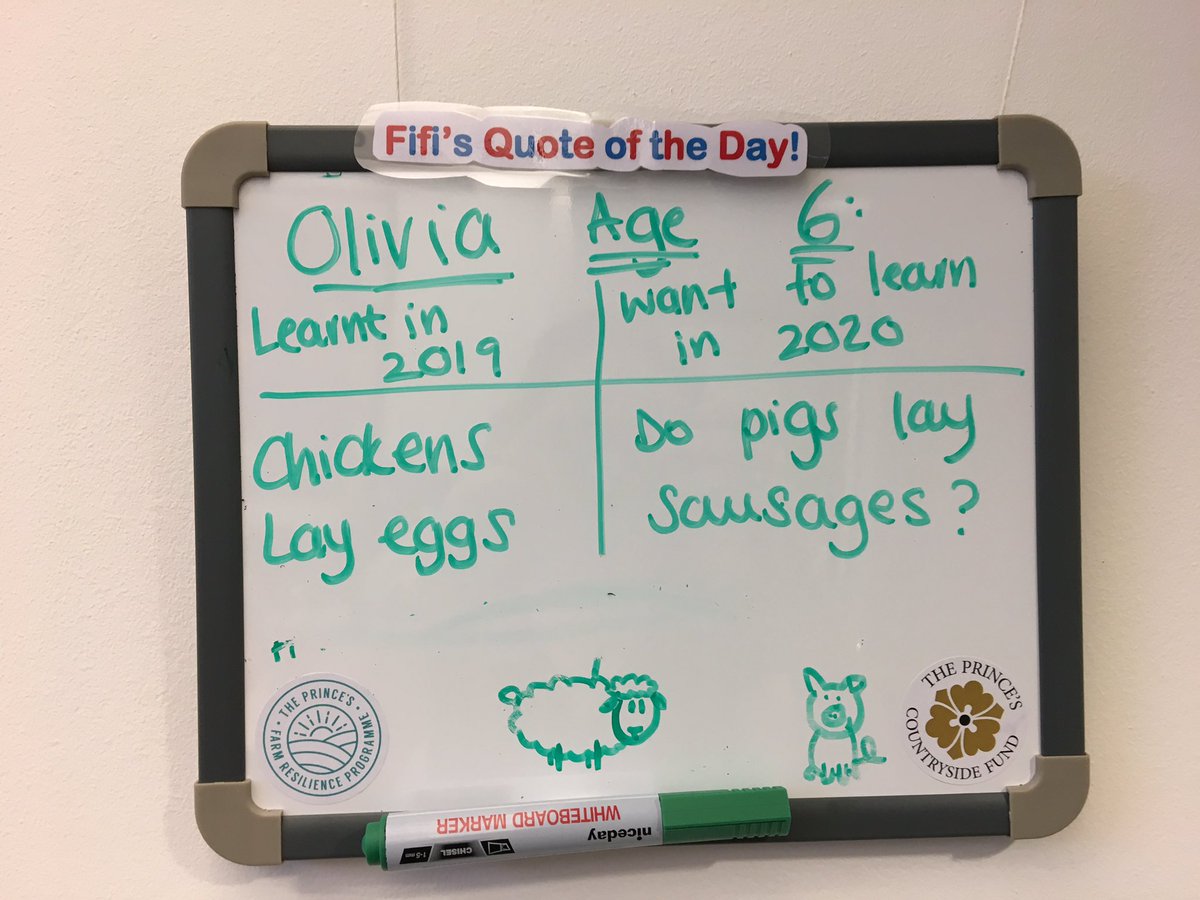 Fifi's Quote of the Day!
Olivia Age 6:
Learnt in
2019
want to learn
in 2020
Chickens
Lay eggs
Do pigs lay
sausages?
THE PRINCE'S
FARM RESILIENCE PROGRAMME
THE PRINCE'S
COUNTRYSIDE FUND
niceday
WHITEBOARD MARKER
CHISEL
1-5 mm